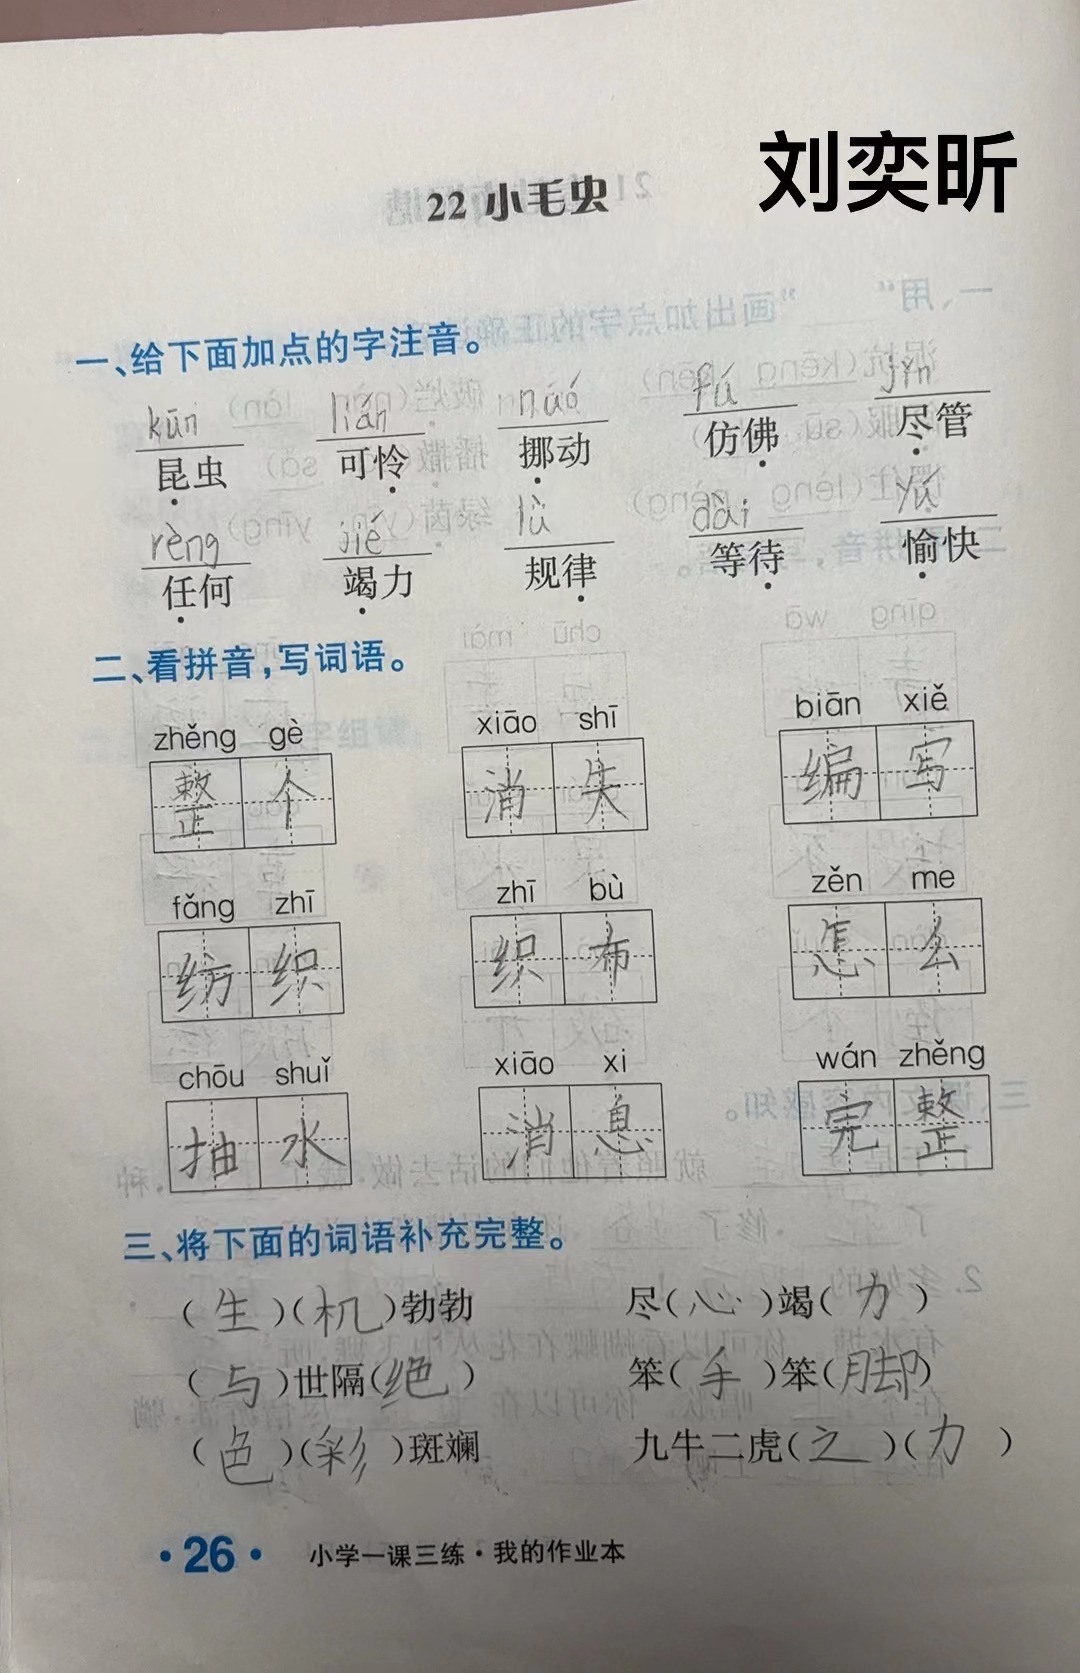 刘奕昕
22 小毛虫
一、给下面加点的字注音。
kūn lián núó fú jǐn
昆虫 可怜 挪动 仿佛 尽管
rèng jié lǜ dài yú
任何 竭力 规律 等待 愉快
二、看拼音,写词语。
zhěng gè xiāo shī biān xiě
整个 消失 编写
fǎng zhī zhī bù zěn me
纺织 织布 怎么
chōu shuǐ xiāo xi wán zhěng
抽水 消息 完整
三、将下面的词语补充完整。
(生)(机)勃勃 尽(心)竭(力)
(与)世隔(绝) 笨(手)笨(脚)
(色)(彩)斑斓 九牛二虎(之)(力)
·26· 小学一课三练·我的作业本